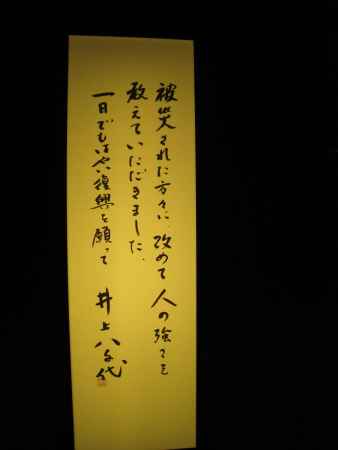 被災された方々に、改めて人の強さを
教えていただきました。
一日でもはやい復興を願って
井上八千代